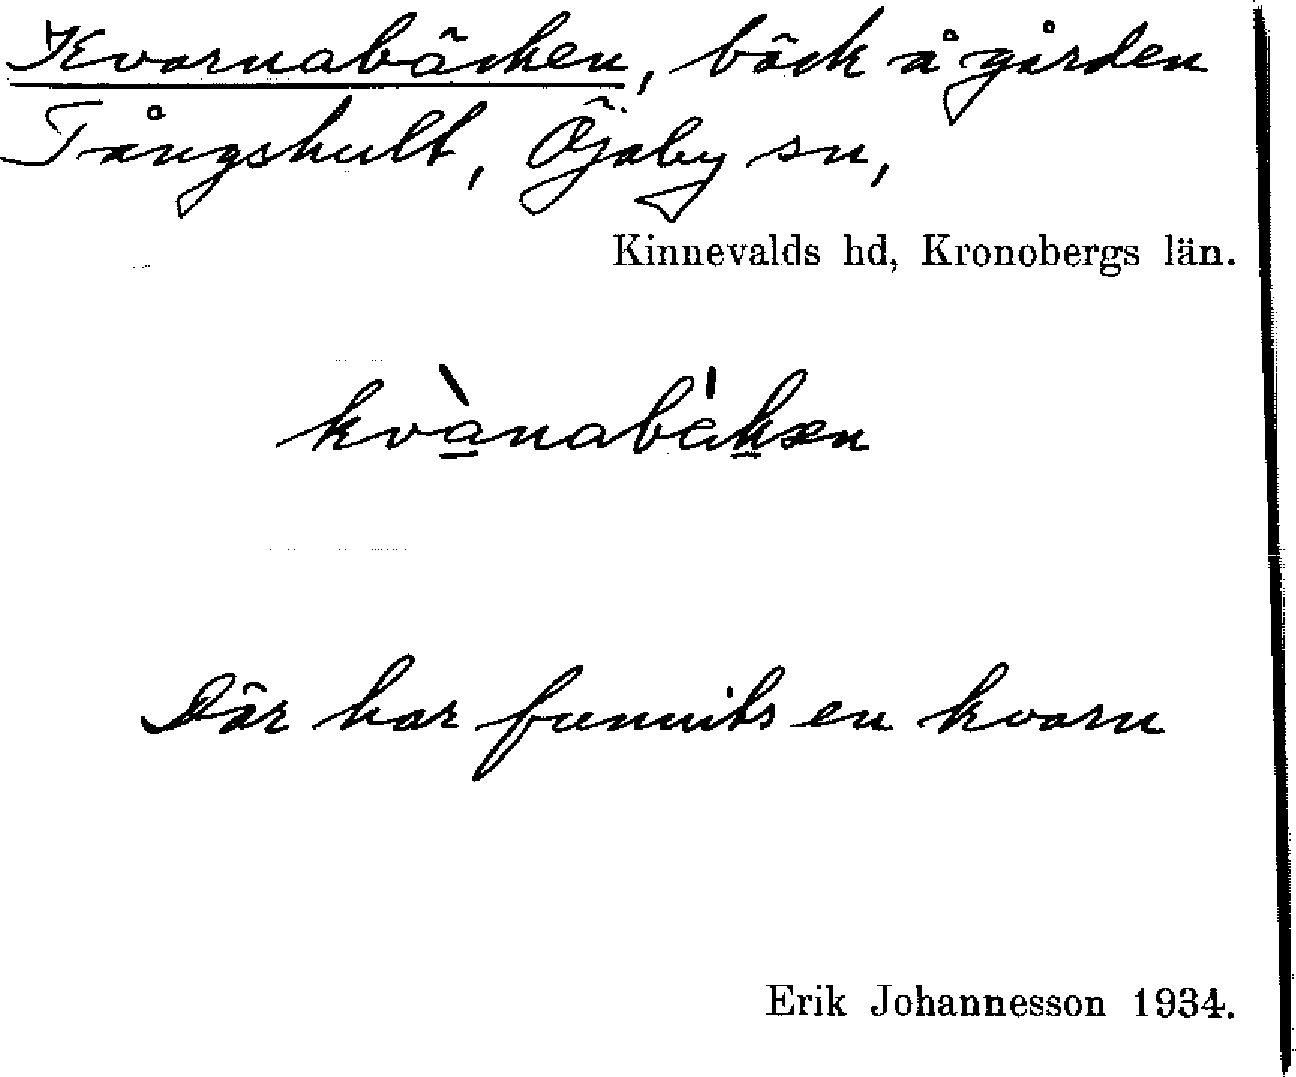 Kvarnabäcken, bäck å gården
Tångshult, Öjaby sn,
Kinnevalds hd, Kronobergs län.
kvànabákæn
Där har funnits en kvarn
Erik Johannesson 1934.